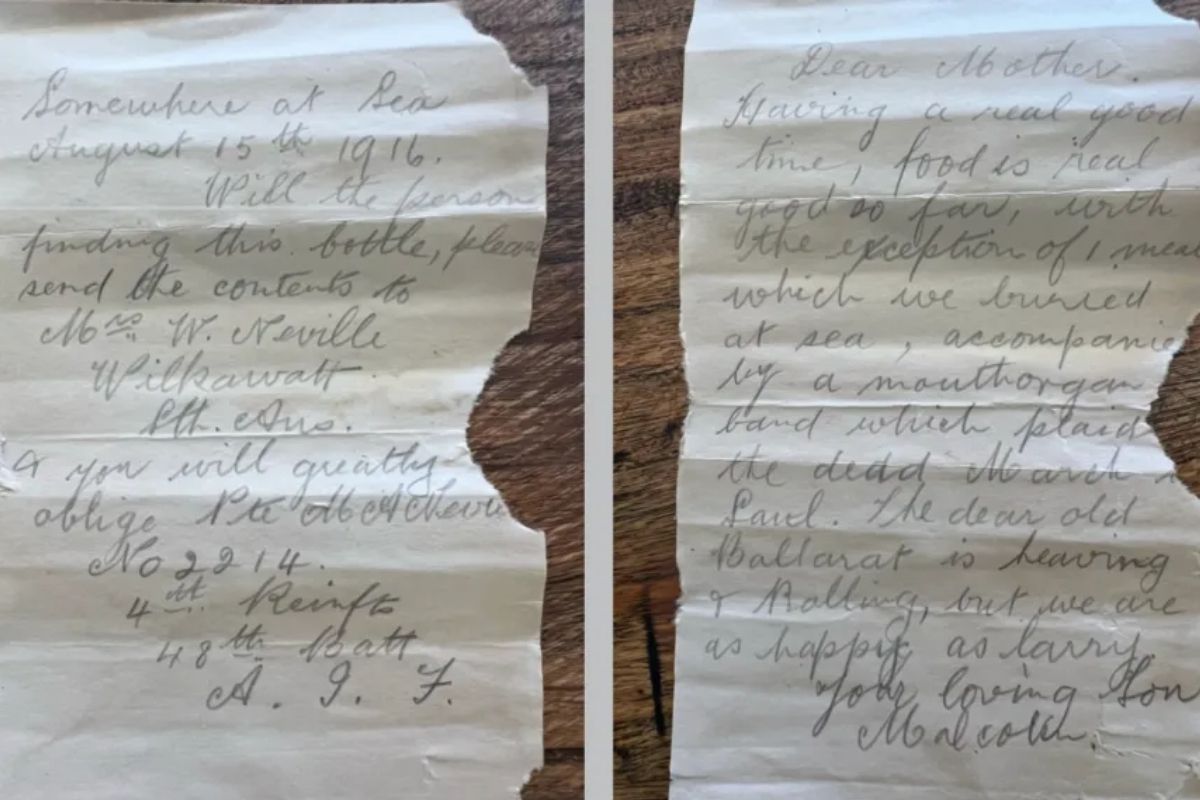 Somewhere at Sea
August 15th 1916.
Will the person
finding this bottle, please
send the contents to
Mrs W. Neville
Wilkawatt
Sth. Aus.
& you will greatly
oblige Pte M A
No 2214.
4th Reinfts
48th Batt
A. I. F.
Dear Mother.
Having a real good
time, food is real
good so far, with
the exception of 1 meal
which we burried
at sea, accompanied
by a mouthorgan
band which plaid
the dedd March
Saul. The dear old
Ballarat is heaving
& Rolling, but we are
as happy as larry.
Your loving Son
Malcolm.